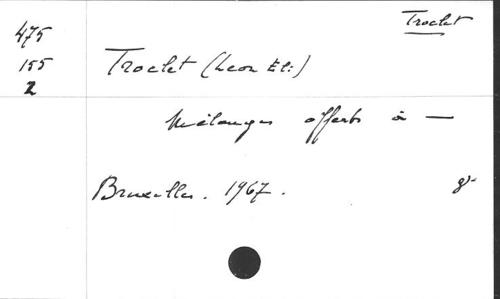 Troclet
475
155
2
Troclet (Leon Eli)
Mélanges offerts à —
Bruxelles. 1967.